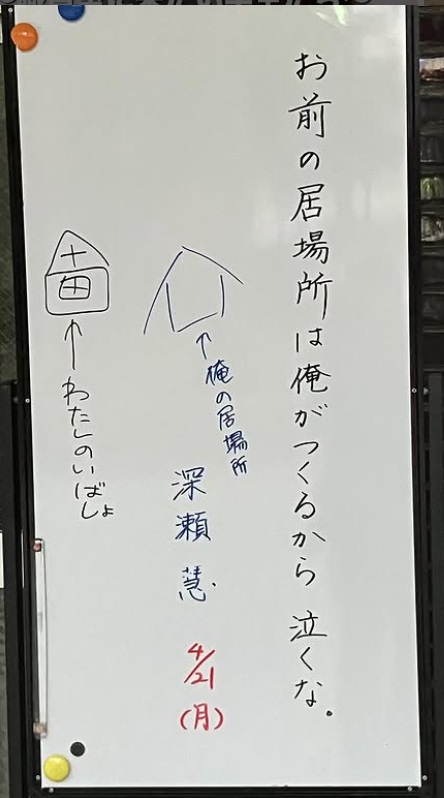 お前の居場所は俺がつくるから 泣くな。
俺の居場所
深瀬 慧
4/21
(月)
わたしのいばしょ